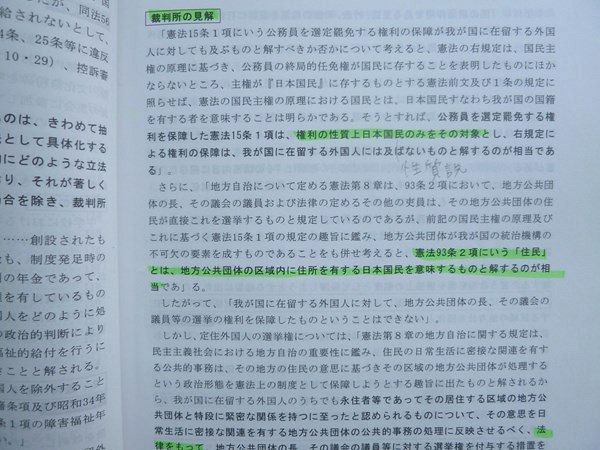 にが、同法56
給されないとして、
4条、25条等に違反
10・29）、控訴審
ものは、きわめて抽
法として具体化する
にどのような立法
おり、それが著しく
場合を除き、裁判所
……創設されたも
も、制度発足時の
の年金であって、
を有しているもの
国人をどのように処
の政治的判断により
福祉的給付を行うに
ことと解される。
国人を除外すること
籍条項及び昭和34年
条1項の障害福祉年
裁判所の見解
「憲法15条1項にいう公務員を選定罷免する権利の保障が我が国に在留する外国
人に対しても及ぶものと解すべきか否かについて考えると、憲法の右規定は、国民主
権の原理に基づき、公務員の終局的任免権が国民に存することを表明したものにほか
ならないところ、主権が『日本国民』に存するものとする憲法前文及び1条の規定に
照らせば、憲法の国民主権の原理における国民とは、日本国民すなわち我が国の国籍
を有する者を意味することは明らかである。そうとすれば、公務員を選定罷免する権
利を保障した憲法15条1項は、権利の性質上日本国民のみをその対象とし、右規定に
よる権利の保障は、我が国に在留する外国人には及ばないものと解するのが相当であ
る」。
性質説
さらに、「地方自治について定める憲法第8章は、93条2項において、地方公共団
体の長、その議会の議員及び法律の定めるその他の吏員は、その地方公共団体の住
民が直接これを選挙するものと規定しているのであるが、前記の国民主権の原理及び
これに基づく憲法15条1項の規定の趣旨に鑑み、地方公共団体が我が国の統治機構の
不可欠の要素を成すものであることをも併せ考えると、憲法93条2項にいう「住民」
とは、地方公共団体の区域内に住所を有する日本国民を意味するものと解するのが相
当であ」る。
したがって、「我が国に在留する外国人に対して、地方公共団体の長、その議会の
議員等の選挙の権利を保障したものということはできない」。
しかし、定住外国人の選挙権については、「憲法第8章の地方自治に関する規定は、
民主主義社会における地方自治の重要性に鑑み、住民の日常生活に密接な関連を有す
る公共的事務は、その地方の住民の意思に基づきその区域の地方公共団体が処理する
という政治形態を憲法上の制度として保障しようとする趣旨に出たものと解されるか
ら、我が国に在留する外国人のうちでも永住者等であってその居住する区域の地方公
共団体と特段に緊密な関係を持つに至ったと認められるものについて、その意思を日
常生活に密接な関連を有する地方公共団体の公共的事務の処理に反映させるべく、法
律をもって、地方公共団体の長、その議会の議員等に対する選挙権を付与する措置を